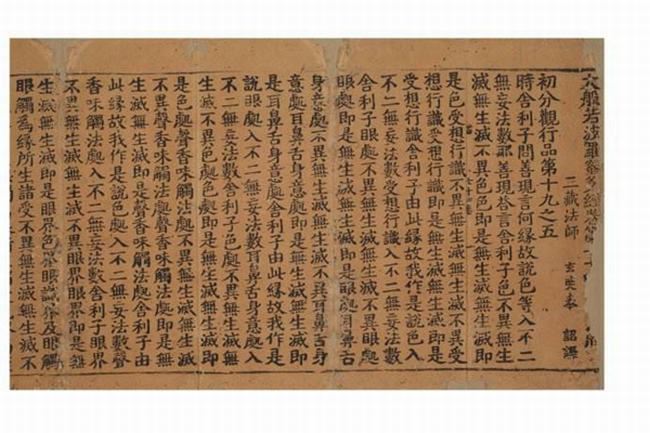 大般若波羅蜜多經卷第
三藏法師 玄奘奉 詔譯
初分觀行品第十九之五
時舍利子問善現言何緣故說色等入不二
無妄法數耶善現荅言舍利子色不異無生
滅無生滅不異色色即是無生滅無生滅即
是色受想行識不異無生滅無生滅不異受
想行識受想行識即是無生滅無生滅即是
受想行識舍利子由此緣故我作是說色入
不二無妄法數受想行識入不二無妄法數
舍利子眼處不異無生滅無生滅不異眼處
眼處即是無生滅無生滅即是眼處耳鼻舌
身意處不異無生滅無生滅不異耳鼻舌身
意處耳鼻舌身意處即是無生滅無生滅即
是耳鼻舌身意處舍利子由此緣故我作是
說眼處入不二無妄法數耳鼻舌身意處入
不二無妄法數舍利子色處不異無生滅無
生滅不異色處色處即是無生滅無生滅即
是色處聲香味觸法處不異無生滅無生滅
不異聲香味觸法處聲香味觸法處即是無
生滅無生滅即是聲香味觸法處舍利子由
此緣故我作是說色處入不二無妄法數聲
香味觸法處入不二無妄法數舍利子眼界
不異無生滅無生滅不異眼界眼界即是無
生滅無生滅即是眼界色界眼識界及眼觸
眼觸為緣所生諸受不異無生滅無生滅不